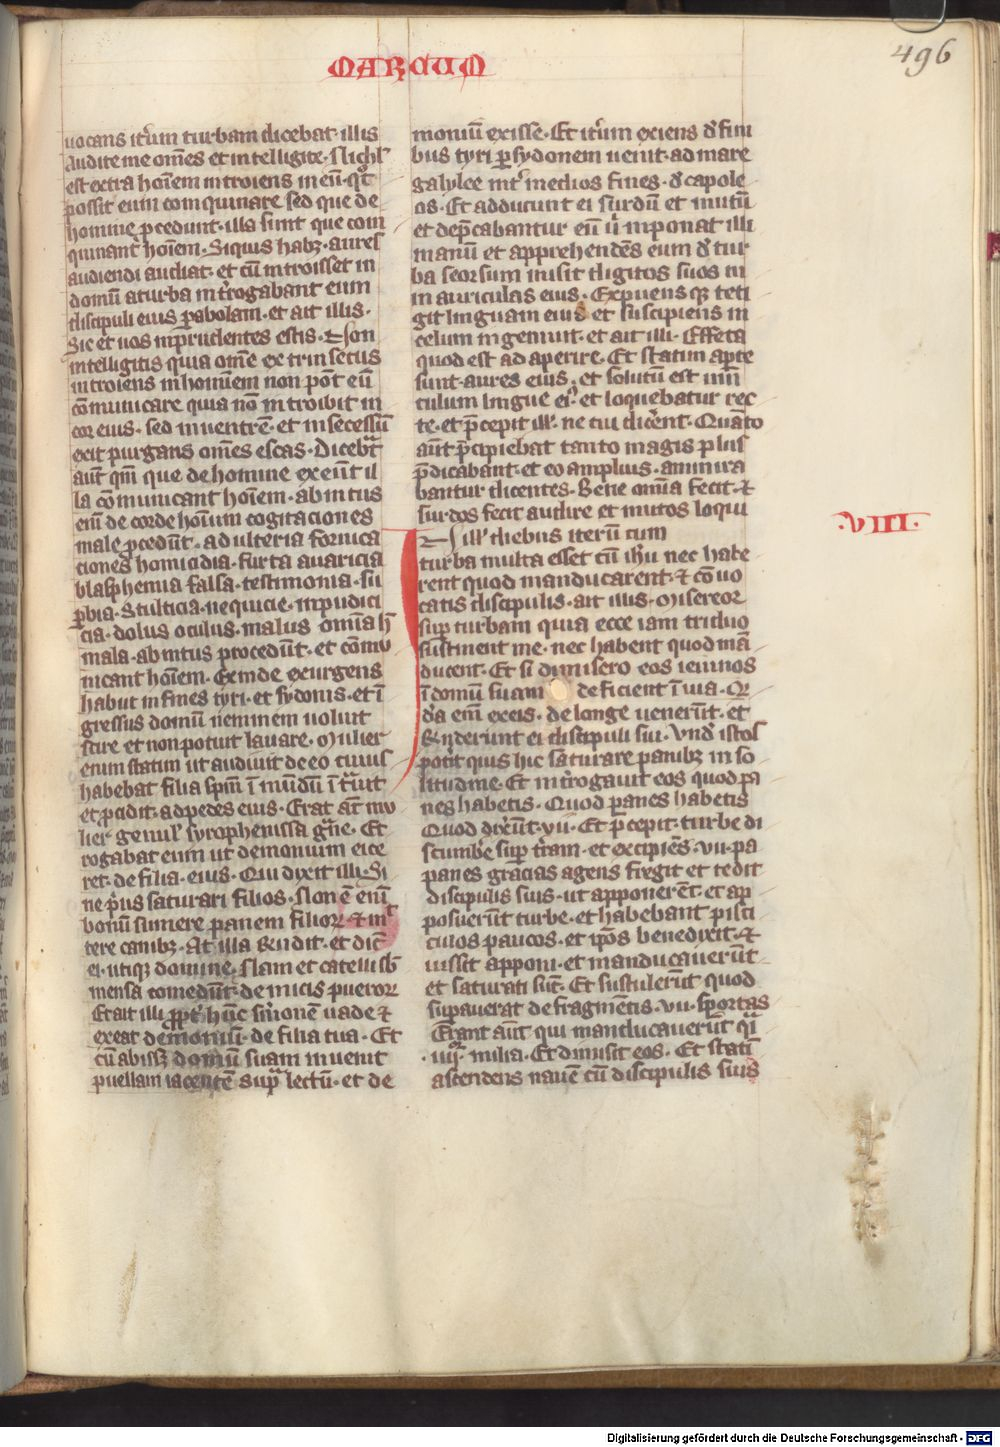 MARCUM
496
uocans itrum turbam dicebat illis
Audite me omēs et intelligite. Nichil
est extra hoīem introiens in eū. qd
possit eum com quinare sed que de
homine p̄cedunt. illa sunt que com
quinant hoīem. Siquis habꝫ. aures
audiendi audiat. et cū introisset in
domū a turba int̄rogabant eum
discipuli eius ꝑabolam. et ait illis.
Sic et uos inprudentes estis. Non
intelligitis quia om̄e ex trin secus
introiens in hominem non pōt eū
cōmunicare quia nō introibit in
cor eius. sed in uentrē. et in secessū
exit purgans om̄es escas. Dicebat
aūt qm̄ que de homine exeūnt il
la cōmunicant hoīem. ab intus
em̄ de corde hoīum cogitaciones
male ꝓcedūt. ad ulteria fornica
tiones homicidia. furta auaricia
blasphemia falsa. testimonia. su
ꝑbia. Stulticia. nequicie. inpudici
cia. dolus oculus. malus omīa h̄
mala. ab intus procedūt. et cōmu
nicant hoīem. Exinde exurgens
habiit in fines tyri. et sydonis. et ī
gressus domū neminem uoluit
scire et non potuit lauare. Mulier
enim statim ut audiuit de eo cuius
habebat filia spm̄ ī mundū ītrauit
et ꝓcidit. ad pedes eius. Erat aūt mu
lier gentil' syrophenissa gn̄e. Et
rogabat eum ut demonium eice
ret. de filia. eius. Qui dixit illi. Si
ne prius saturari filios. Non ē enī
bonū sumere panem filioꝝ ⁊ mit
tere canibꝫ. At illa Rn̄dit. et dic̄
ei. utiqꝫ domine. Nam et catelli sb̄
mensa comedūt. de micis pueroꝝ
Et ait illi ꝓpt' hūc smonē uade ⁊
exeat demoniū. de filia tua. Et
cū abissꝫ domū suam inuenit
puellam iacentē supra lectū. et de
moniū exisse. Et itrum exiens d' fini
bus tyri ꝑ sydonem uenit. ad mare
galylee int' medios fines. d' capole
os. Et adducunt ei surdū et mutū
et depcabantur eū ut inponat illi
manū et apprehendēs eum d' tur
ba seorsum misit digitos suos in
in auriculas eius. Expuens qꝫ teti
git linguam eius et suscipiens in
celum ingemuit. et ait illi. Effeta
quod est ad aperire. Et statim apte
sunt. aures eius. et solutū est uin
culum lingue ei'. et loquebatur rec
te. et p̄cepit ill'. ne cui dicerent. Quāto
aūt p̄cipiebat tanto magis plus
p̄dicabant. et eo amplius. ammira
bantur dicentes. Bene omīa fecit. ⁊
surdos fecit audire et mutos loqui
.VIII.
IN ill' diebus iterū cum
turba multa esset cū ihū nec habe
rent quod manducarent. ⁊ cōuo
catis discipulis. ait illis. Misereor
sup turbam quia ecce iam triduo
sustinent me. nec habent quod mā
ducent. Et si dimisero eos ieiunos
ī domū suam deficient ī uia. Q
dā em̄ ex eis. de longe uenerūt. et
Rn̄derunt ei discipuli sui. Vnd' istos
potit quis hic saturare panibꝫ in so
litudine. Et int̄rogauit eos quod pa
nes habetis. Quod panes habetis
Quod dixerūt. vii. Et p̄cepit. turbe di
scumbe sup terram. et accipiēs. vii. pa
panes gracias agens fregit et dedit
discipulis suis. ut apponerēt. et ap
posuerūt turbe. et habebant pisci
culos paucos. et ip̄os benedixit. ⁊
iussit apponi. et manducauerūt
et saturati sūt. Et sustulerūt quod
supauerat de fragmētis. vii. sportas
Erant aūt qui manducauerūt q̄i
.iiij. milia. Et dimisit eos. Et statī
ascendens nauē cū discipulis suis
Digitalisierung gefördert durch die Deutsche Forschungsgemeinschaft - DFG